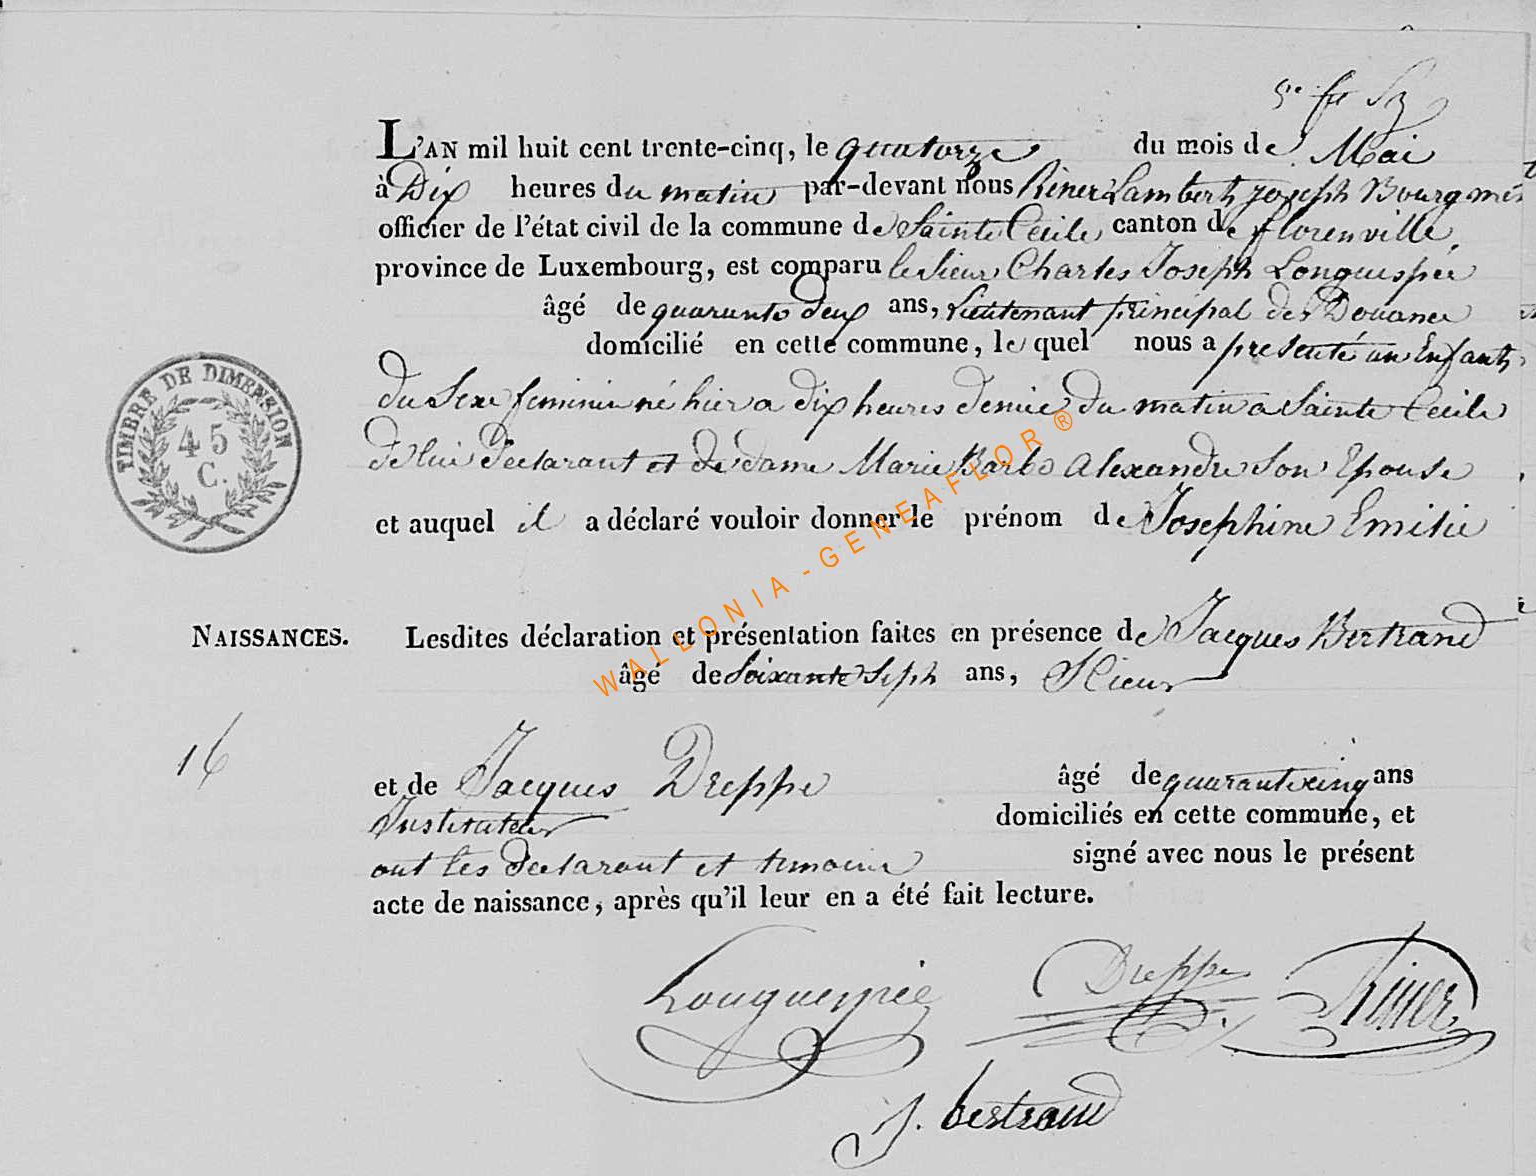 5e ft Sz
L'AN mil huit cent trente-cinq, le quatorze du mois de Mai
à Dix heures du matin par-devant nous Riner Lambert joseph Bourgmes
officier de l'état civil de la commune de Sainte Cécile, canton de florenville,
province de Luxembourg, est comparu le Sieur Charles Joseph Longuespée
âgé de quarante deux ans, Lieutenant principal des Douanes
domicilié en cette commune, lequel nous a presenté un Enfant
du Sexe feminin né hier a dix heures demie du matin a Sainte Cecile
de lui déclarant et de dame Marie Barbe Alexandre Son Epouse
et auquel il a déclaré vouloir donner le prénom de Josephine Emilie
NAISSANCES. Lesdites déclaration et présentation faites en présence de Jacques Bertrand
âgé de Soixante Sept ans, Scieur
16
et de Jacques Dreppe âgé de quarante cinq ans
Instituteur domiciliés en cette commune, et
ont les déclarant et temoins signé avec nous le présent
acte de naissance, après qu'il leur en a été fait lecture.
Longuespée Dreppe Riner
J. bertrand
TIMBRE DE DIMENSION
45
C.
WALLONIA-GENEAFLOR®